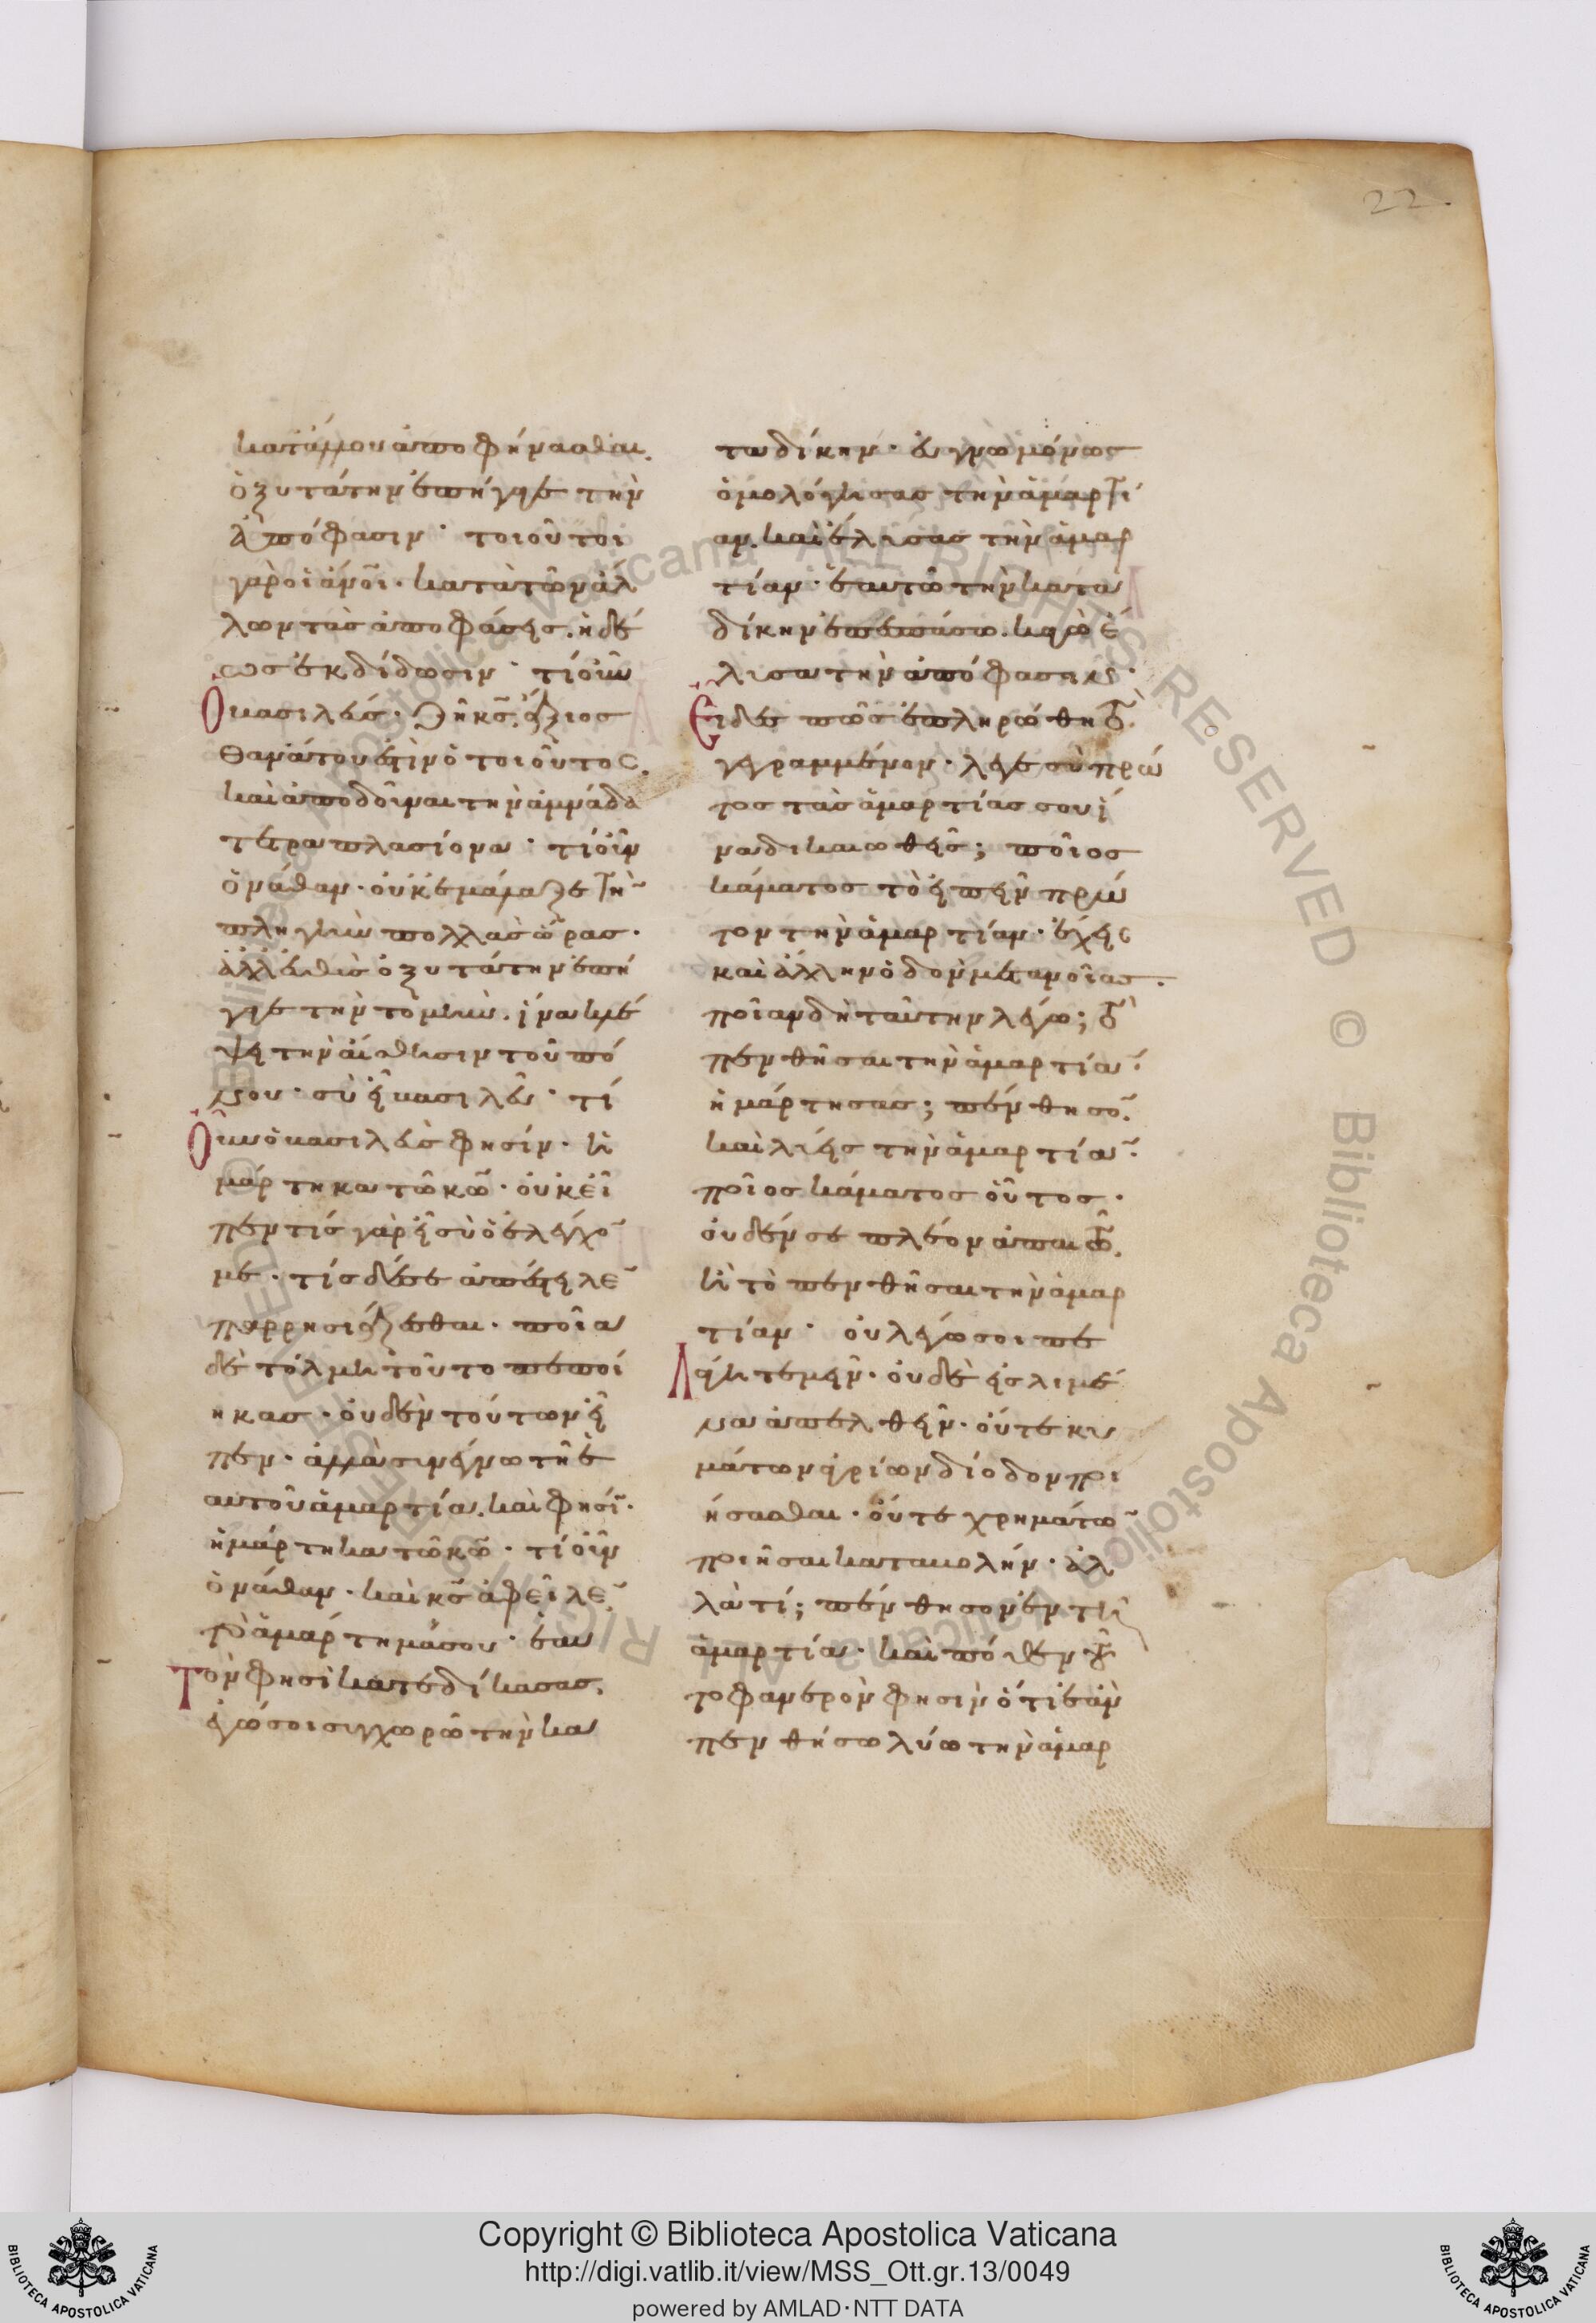 22.
κατάλλου ἀποφήνασθαι.
ὀξυτάτην ἐπήγαγε τὴν
ἀπόφασιν· τοιοῦτοι
γὰρ οἱ ἄνοι· κατὰ τῶν ἀλ
λων τὰς ἀποφάσεις. ἡδέ
ως ἐκδίδωσιν· τί οὖν
ὁ βασιλεύς· ζῇ κς. ἄξιος
θανάτου ἐστὶν ὁ τοιοῦτος.
καὶ ἀποδοῦναι τὴν ἀμνάδα
τετραπλασίονα· τί οὖν
ὁ νάθαν· οὐκ ἐμάλαξε τὴν
πληγὴν πολλὰς ὥρας·
ἀλλ' εὐθὺς ὀξυτάτην ἐπή
γαγε τὴν τομήν. ἵνα κλέ
ψῃ τὴν αἴσθησιν τοῦ πό
νου· σὺ εἶ βασιλεῦ· τί
οὖν ὁ βασιλεὺς φησίν· ἡ
μάρτηκα τῶ κω· οὐκ εἶ
πεν τίς γὰρ εἶ σὺ ὁ ἐλέγχων
με· τίς δέ σε ἀπέστειλεν
παρρησιάζεσθαι· ποία
δὲ τόλμη τοῦτο πεποί
ηκας· οὐδὲν τούτων εἶ
πεν· ἀλλὰ συνέγνω τῇ ἑ
αυτοῦ ἁμαρτία. καὶ φησίν·
ἡμάρτηκα τῶ κω· τί οὖν
ὁ νάθαν· καὶ κς ἀφεῖλεν
τὸ ἁμάρτημά σου· ἑαυ
τὸν φησὶ κατεδίκασας.
ἐγώ σοι συγχωρῶ τὴν κα
ταδίκην· εὐγνωμόνως
ὁμολόγησας τὴν ἁμαρτί
αν. καὶ ἔλυσας τὴν ἁμαρ
τίαν· ἑαυτῶ τὴν κατα
δίκην ἐπεσπάσω. καγὼ ἔ
λυσα τὴν ἀπόφασιν·
εἶδες πῶς ἐπληρώθη τὸ
γεγραμμένον· λέγε σὺ πρῶ
τος τὰς ἁμαρτίας σου ἵ
να δικαιωθῇς; ποῖος
κάματος τὸ εἰπεῖν πρῶ
τον τὴν ἁμαρτίαν· ἔχεις
καὶ ἄλλην ὁδὸν μετανοίας.
ποίαν δὴ ταύτην λέγω; τὸ
πενθῆσαι τὴν ἁμαρτίαν.
ἡμάρτησας; πένθησον.
καὶ λύεις τὴν ἁμαρτίαν.
ποῖος κάματος οὗτος·
οὐδέν σε πλέον ἀπαιτῶ.
ἢ τὸ πενθῆσαι τὴν ἁμαρ
τίαν· οὐ λέγω σοι πε
λάγη τεμεῖν· οὐδὲ εἰς λιμέ
να ἀπελθεῖν· οὔτε κυ
μάτων ἀγρίων δίοδον ποι
ήσασθαι· οὔτε χρημάτων
ποιῆσαι καταβολήν· ἀλ
λὰ τί; πένθησον ἐν τῇ
ἁμαρτία· καὶ πόθεν τοῦ
το φανερὸν φησὶν ὅτι ἐὰν
πενθήσω λύω τὴν ἁμαρ
Copyright © Biblioteca Apostolica Vaticana
http://digi.vatlib.it/view/MSS_Ott.gr.13/0049
powered by AMLAD·NTT DATA